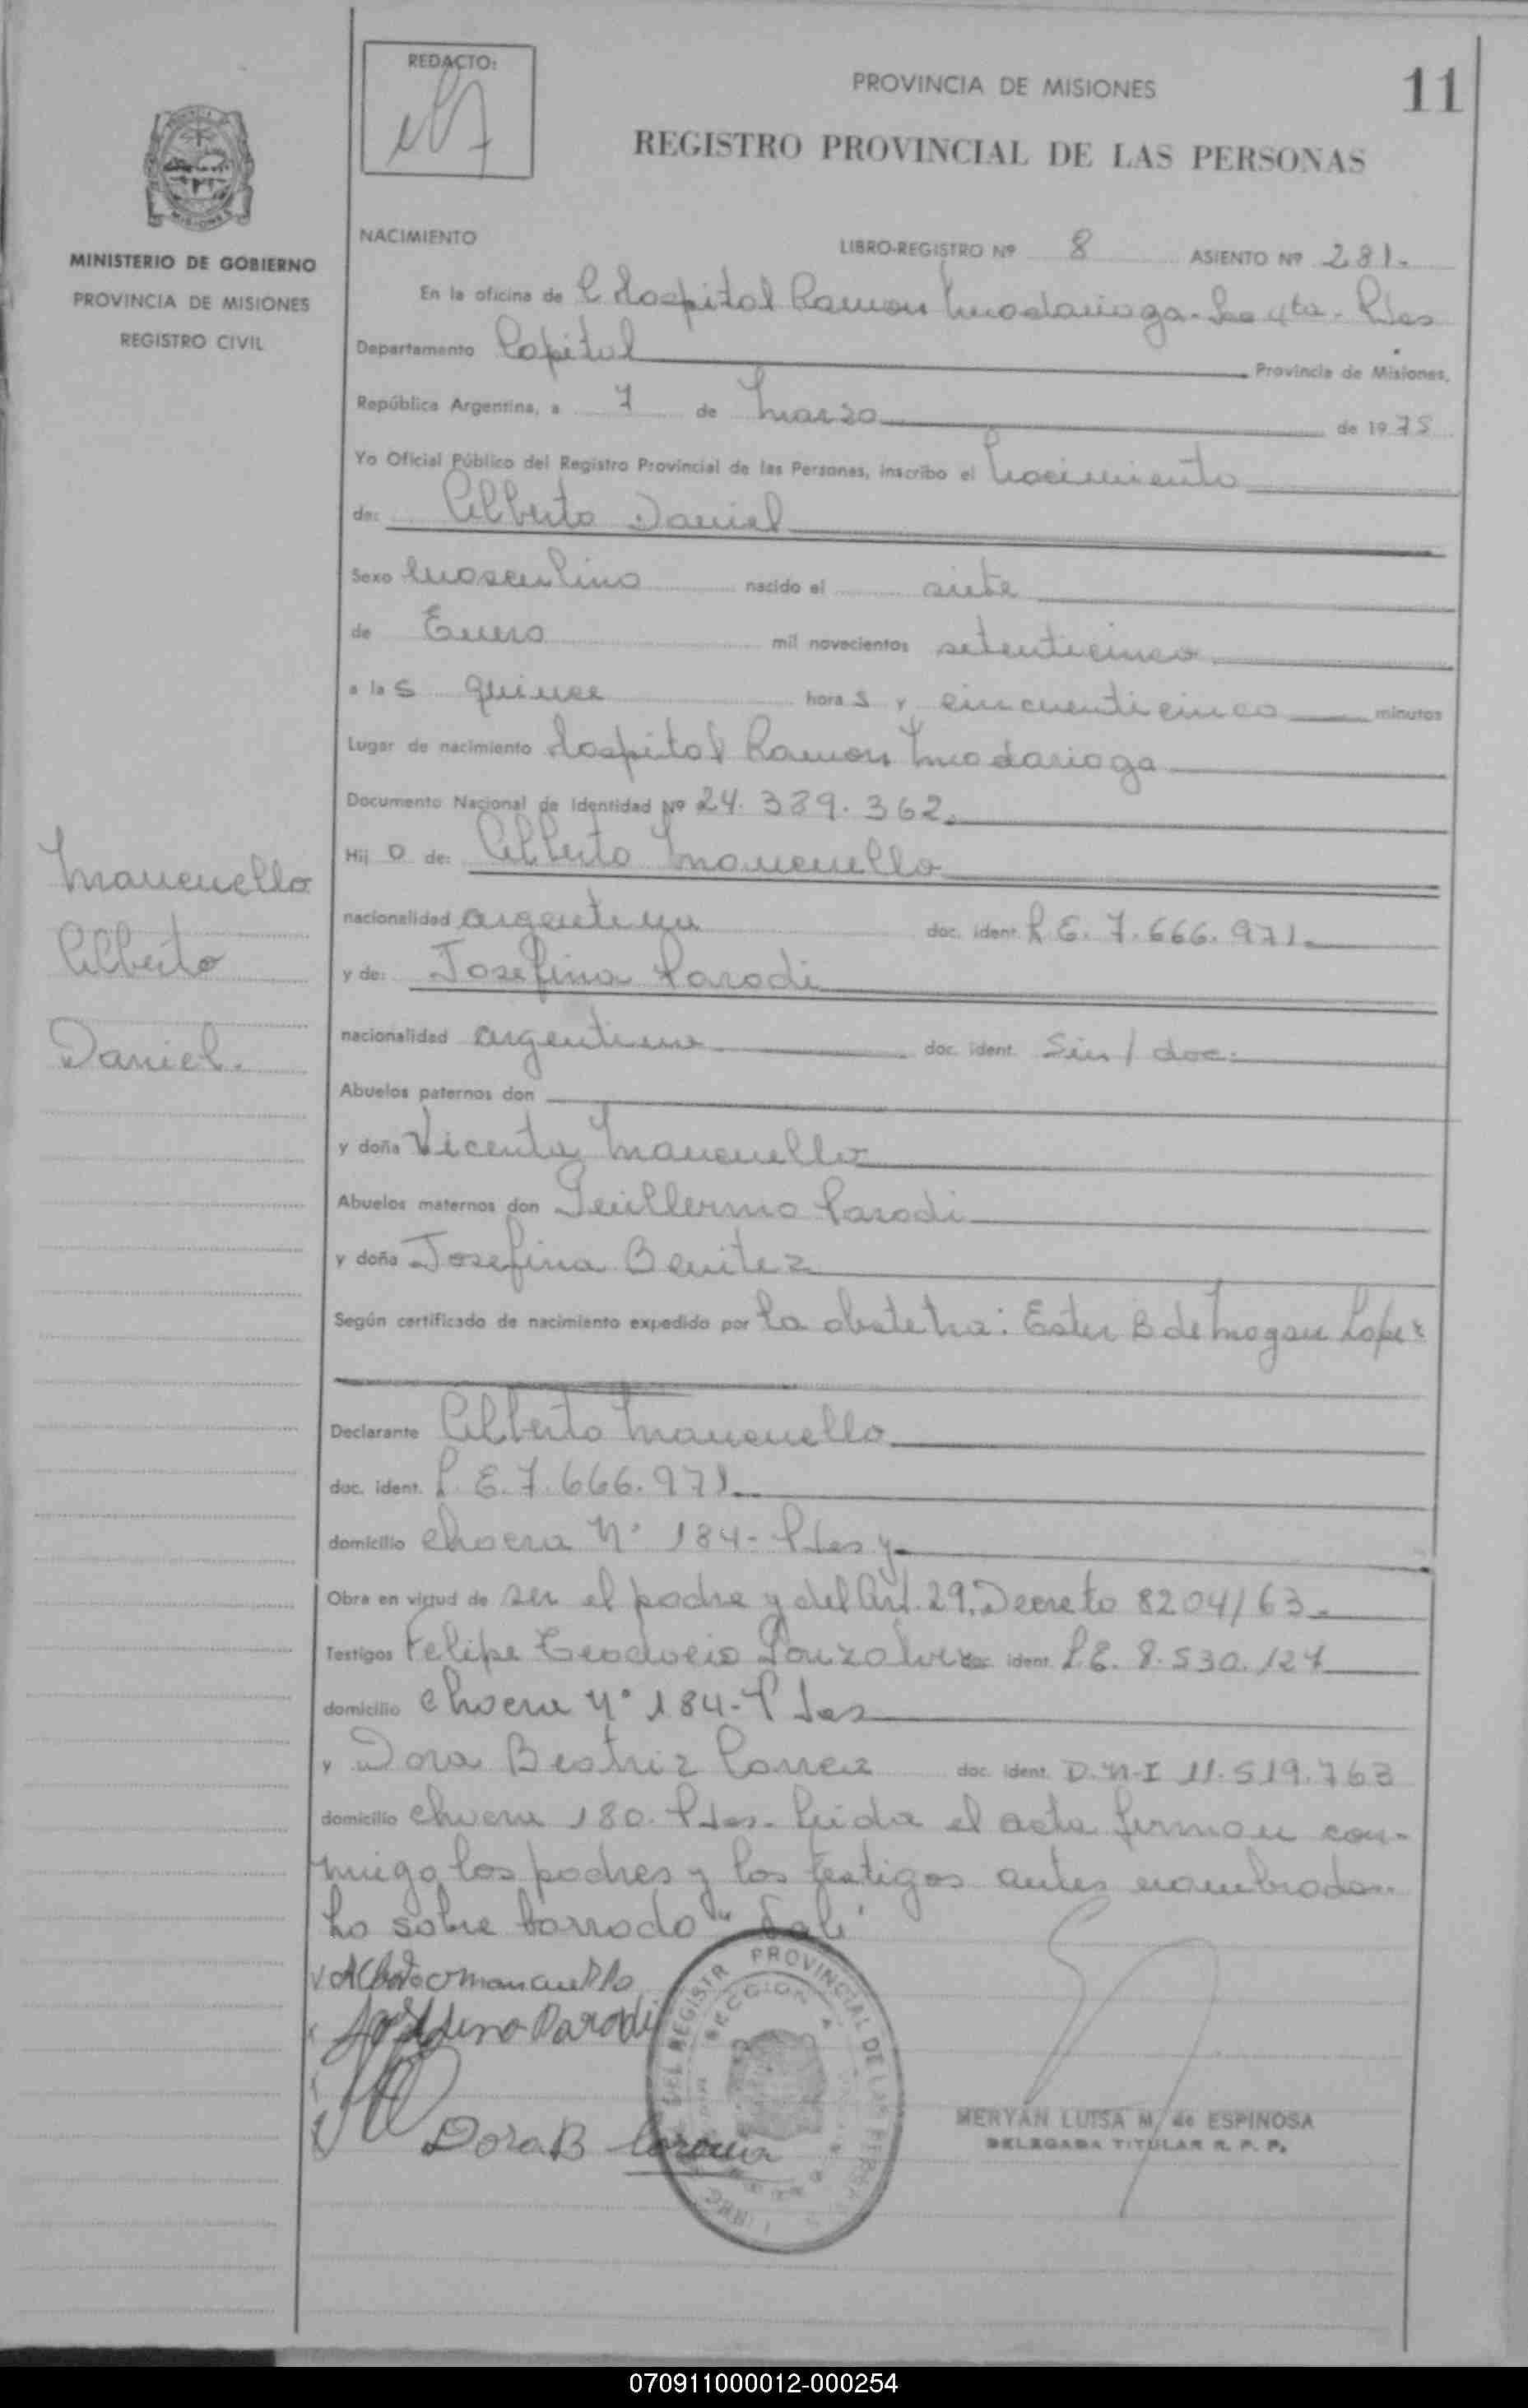 REDACTO:
PROVINCIA DE MISIONES
11
REGISTRO PROVINCIAL DE LAS PERSONAS
MISIONES
MINISTERIO DE GOBIERNO
PROVINCIA DE MISIONES
REGISTRO CIVIL
NACIMIENTO
LIBRO-REGISTRO Nº 8 ASIENTO Nº 281.
En la oficina de Hospital Ramon Madariaga - Sec 4ta - Pdas
Departamento Capital Provincia de Misiones,
República Argentina, a 7 de Marzo de 1975
Yo Oficial Público del Registro Provincial de las Personas, inscribo el Nacimiento
de: Alberto Daniel
Sexo Masculino nacido el siete
de Enero mil novecientos setenticinco
a las quince horas y cincuenticinco minutos
Lugar de nacimiento Hospital Ramon Madariaga
Documento Nacional de Identidad Nº 24.339.362.
Hijo de: Alberto Mancuello
nacionalidad argentina doc. ident. L.E. 7.666.971.
y de: Josefina Parodi
nacionalidad argentina doc. ident. Sin/doc.
Abuelos paternos don
y doña Vicenta Mancuello
Abuelos maternos don Guillermo Parodi
y doña Josefina Benitez
Según certificado de nacimiento expedido por la obstetra: Ester B de Lopez
Declarante Alberto Mancuello
doc. ident. L.E. 7.666.971
domicilio chacra Nº 184 - Pdas y
Obra en virtud de ser el padre y del Art. 29. Decreto 8204/63.
Testigos Felipe doc. ident. L.E. 8.530.127
domicilio chacra Nº 184 - Pdas
y Dora Beatriz doc. ident. D.N.I 11.519.763
domicilio chacra 180. Pdas. Leida el acta firman con-
migo los padres y los testigos antes nombrados.
Lo sobre borrado "
Mancuello
Alberto
Daniel.
Alberto Mancuello
Josefina Parodi
Dora B
DEL REGISTR PROVINCIAL DE LAS PERS
SECCION
MERYAN LUISA M. de ESPINOSA
DELEGADA TITULAR R. P. P.
070911000012-000254